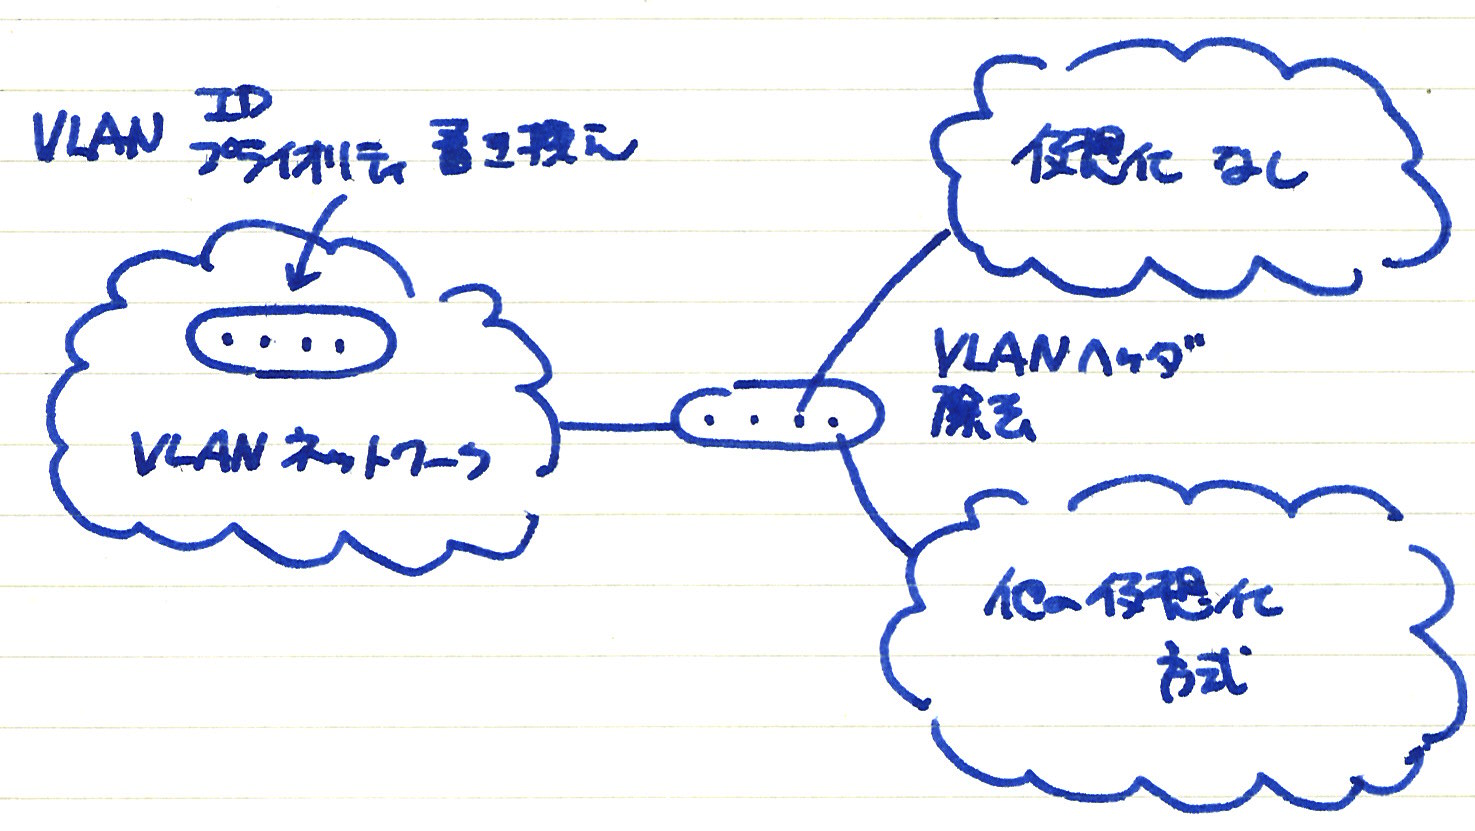 VLAN ID
プライオリティ 書き換え
VLAN ネットワーク
仮想化 なし
VLAN ヘッダ
除去
他の仮想化
方式